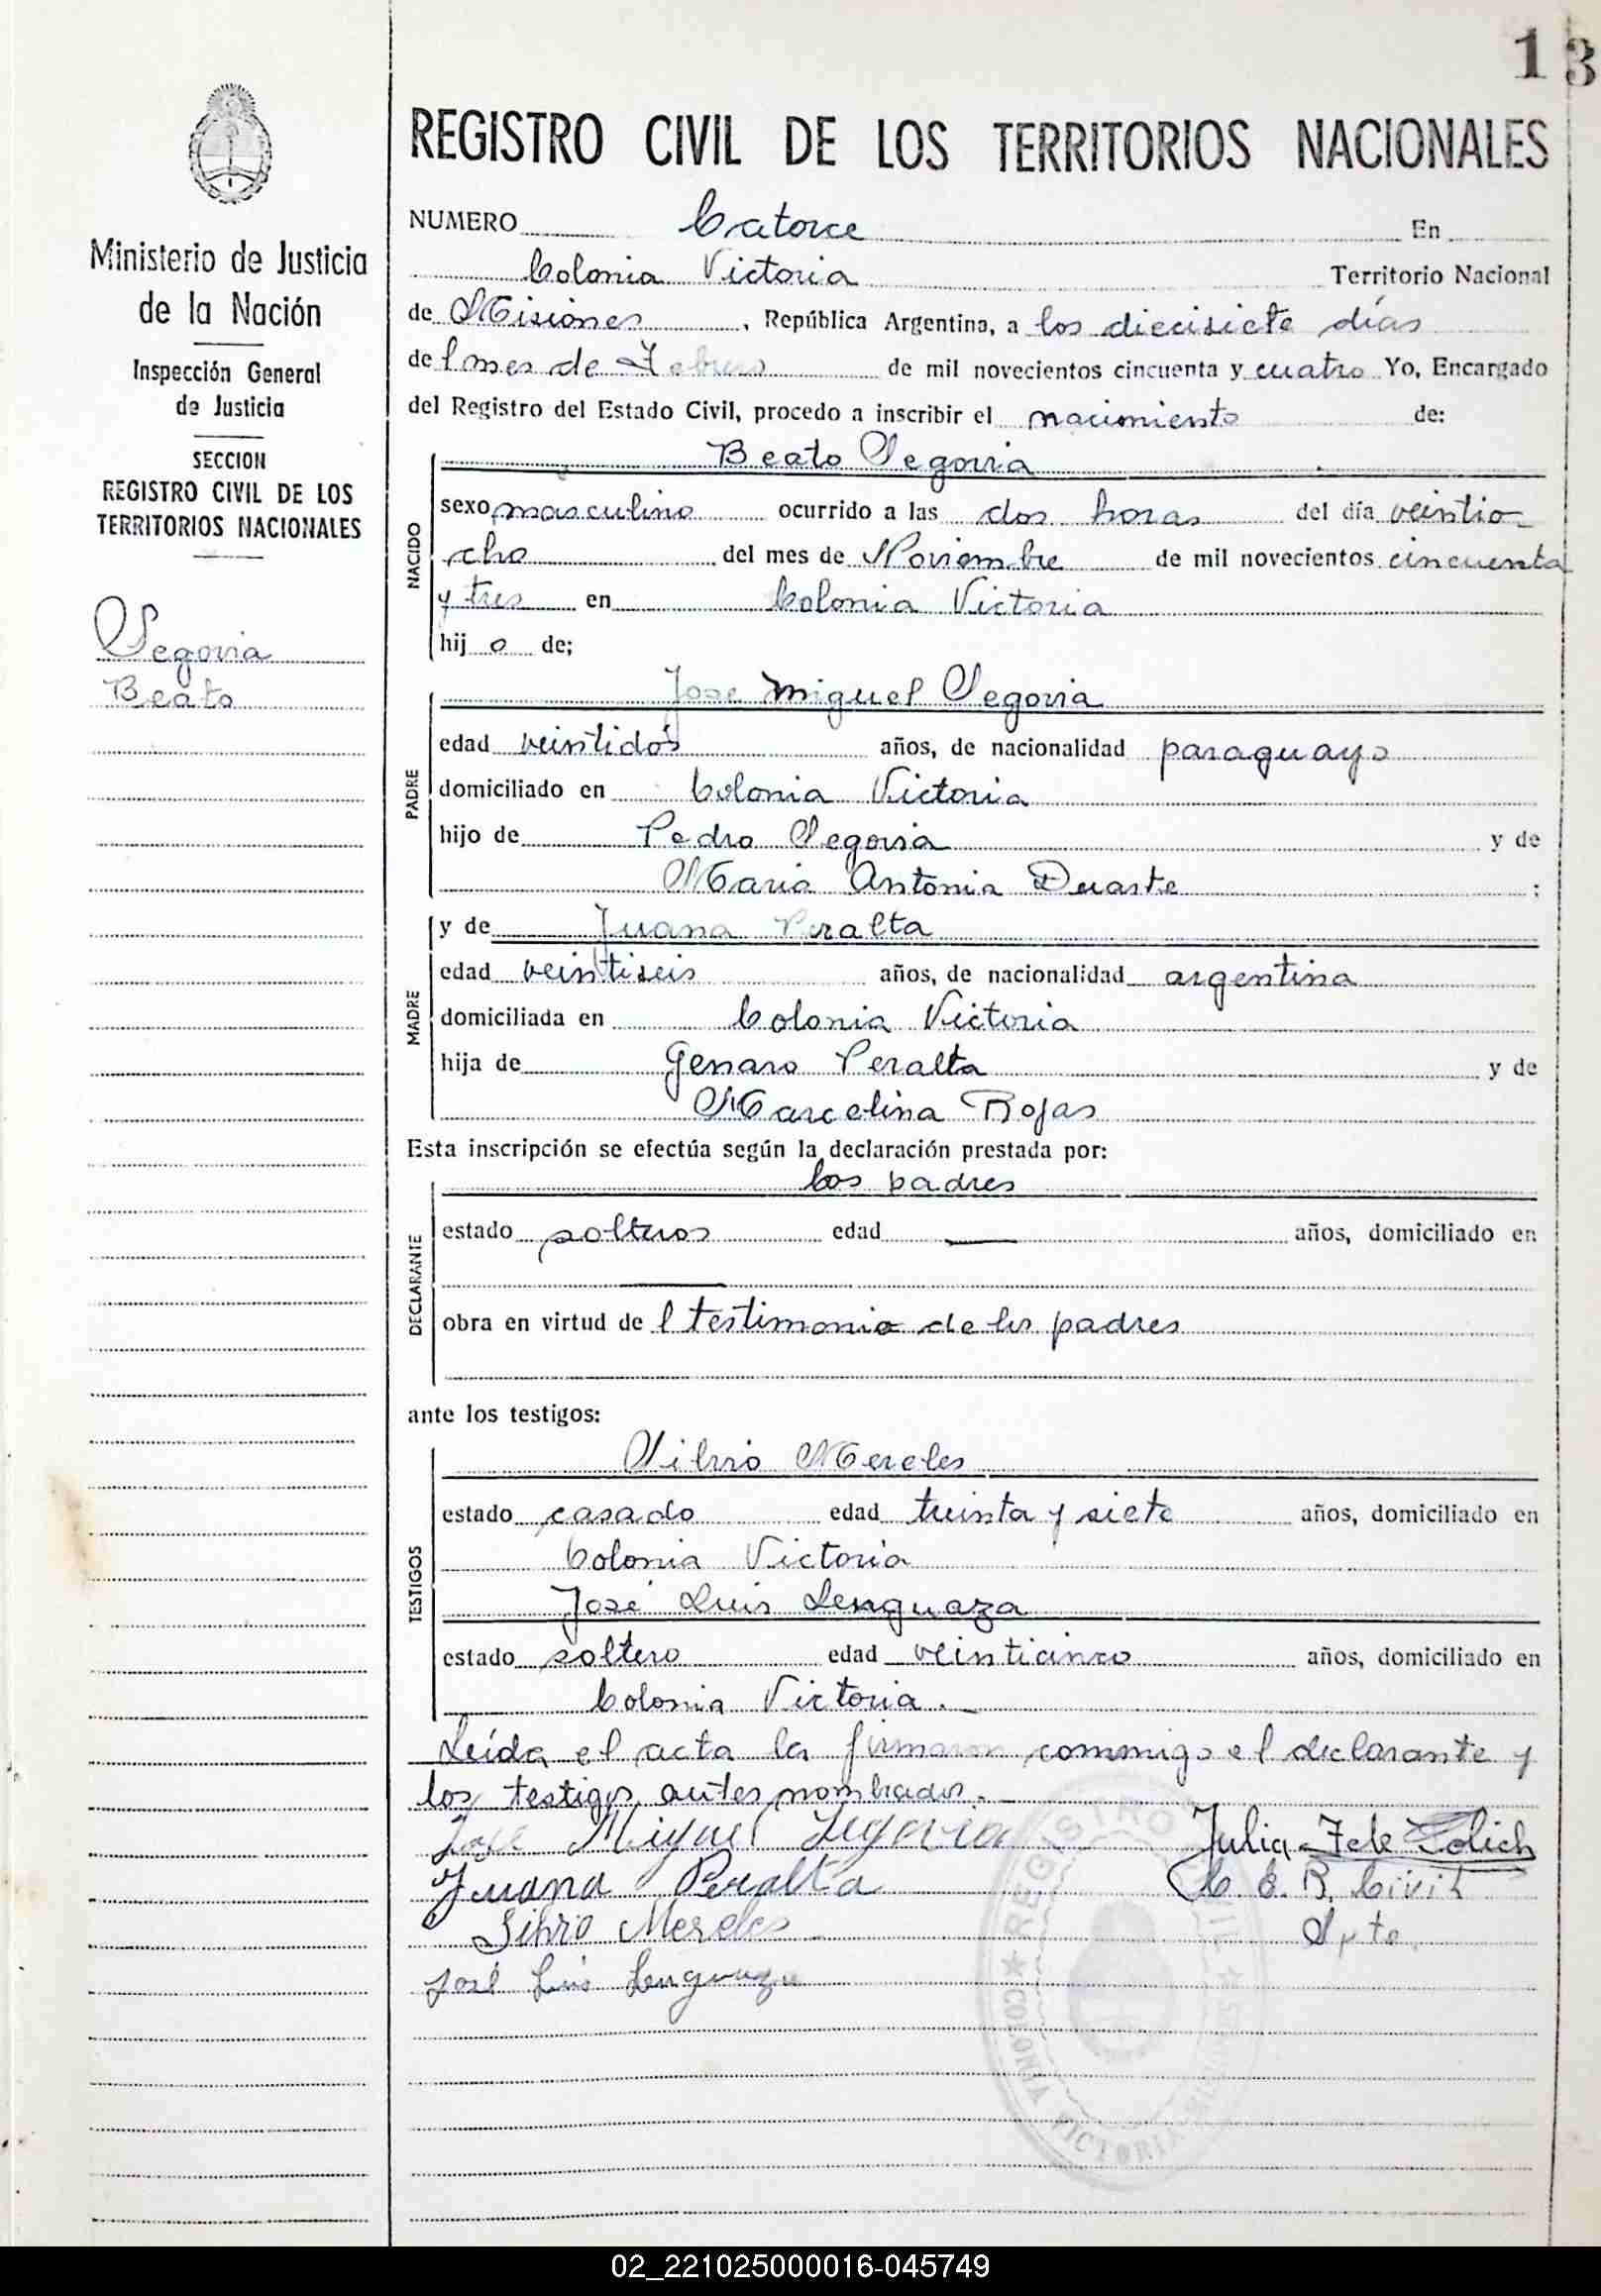 13
Ministerio de Justicia
de la Nación
Inspección General
de Justicia
SECCION
REGISTRO CIVIL DE LOS
TERRITORIOS NACIONALES
Segovia
Beato
REGISTRO CIVIL DE LOS TERRITORIOS NACIONALES
NUMERO Catorce En
Colonia Victoria Territorio Nacional
de Misiones, República Argentina, a los diecisiete días
del mes de Febrero de mil novecientos cincuenta y cuatro Yo, Encargado
del Registro del Estado Civil, procedo a inscribir el nacimiento de:
NACIDO
Beato Segovia
sexo masculino ocurrido a las dos horas del día veintio
cho del mes de Noviembre de mil novecientos cincuenta
y tres en Colonia Victoria
hijo de;
PADRE
Jose Miguel Segovia
edad veintidós años, de nacionalidad paraguayo
domiciliado en Colonia Victoria
hijo de Pedro Segovia y de
Maria Antonia Duarte ;
MADRE
y de Juana Peralta
edad veintiseis años, de nacionalidad argentina
domiciliada en Colonia Victoria
hija de Genaro Peralta y de
Marcelina Rojas
Esta inscripción se efectúa según la declaración prestada por:
DECLARANTE
los padres
estado solteros edad — años, domiciliado en
—
obra en virtud del testimonio de los padres
ante los testigos:
TESTIGOS
Silvio Mereles
estado casado edad treinta y siete años, domiciliado en
Colonia Victoria
José Luis Lenguaza
estado soltero edad veinticinco años, domiciliado en
Colonia Victoria.-
Leída el acta la firmaron conmigo el declarante y
los testigos antes nombrados.-
José Miguel Segovia
Juana Peralta
Silvio Mereles
José Luis Lenguaza
Julia
C. E. R. Civil
Spte.
REGISTRO CIVIL
COLONIA VICTORIA
02_221025000016-045749